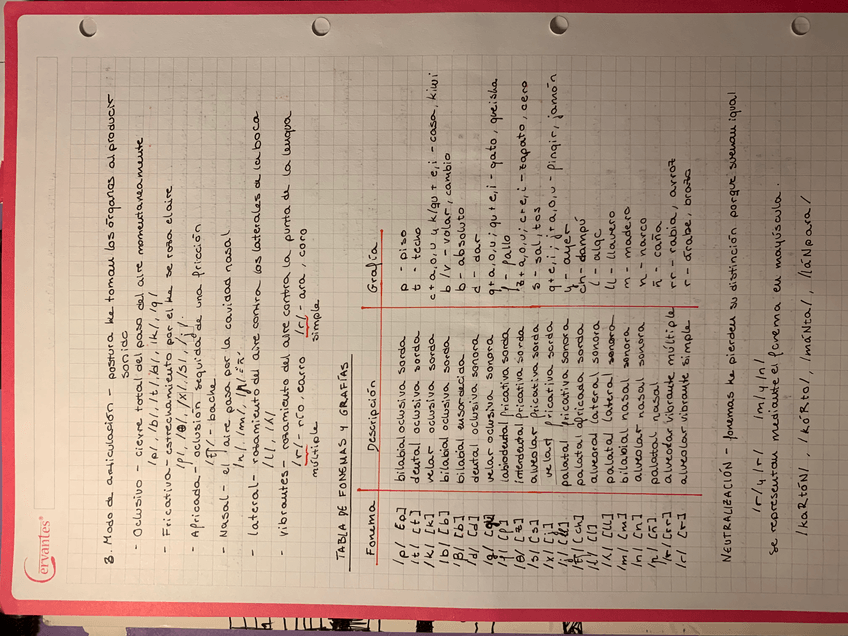 cervantes®
3. Modo de articulación - postura ke toman los órganos al producir
sonido
- Oclusivo - cierre total del paso del aire momentáneamente
/p/, /b/, /t/, /d/, /k/, /g/
- Fricativa - estrechamiento por el ke se roza el aire
/f/, /θ/, /x/, /s/, /j/.
- Africada - oclusión seguida de una fricción
- bache
- Nasal - el aire pasa por la cavidad nasal
/n/, /m/, /ɲ/ ñ.
- Lateral - rozamiento del aire contra los laterales de la boca
/l/, /ʎ/
- Vibrantes - rozamiento del aire contra la punta de la lengua
/r̄/ - rico, carro /r/ - ara, coro
múltiple simple
TABLA DE FONEMAS Y GRAFÍAS
Fonema Descripción Grafía
/p/ [p] bilabial oclusiva sorda p - piso
/t/ [t] dental oclusiva sorda t - techo
/k/ [k] velar oclusiva sorda c+a,o,u y k/qu+e,i - casa, kiwi
/b/ [b] bilabial oclusiva sonora b/v - volar, cambio
/β/ [b] bilabial ensordecida b - absoluto
/d/ [d] dental oclusiva sonora d - dar
/g/ velar oclusiva sonora g+a,o,u; gu+e,i - gato, gueisha
/f/ [f] labiodental fricativa sorda f - fallo
/θ/ [z] interdental fricativa sorda z+a,o,u; c+e,i - zapato, cero
/s/ [s] alveolar fricativa sorda s - sal, tos
/x/ [j] velar fricativa sorda g+e,i; j+a,o,u - fingir, jamón
/j/ [ll] palatal fricativa sonora y - ayer
[ch] palatal africada sorda ch - dampú
/l/ [l] alveoral lateral sonora l - alga
/ʎ/ [ll] palatal lateral sonora ll - llavero
/m/ [m] bilabial nasal sonora m - madero
/n/ [n] alveolar nasal sonora n - narco
/ɲ/ [ñ] palatal nasal ñ - caña
/r̄/ [rr] alveolar vibrante múltiple rr - rabia, arroz
/r/ [r] alveolar vibrante simple r - árabe, oraza
NEUTRALIZACIÓN - fonemas ke pierden su distinción porque suenan igual
/r̄/ y /r/ /m/ y /n/
se representan mediante el fonema en mayúscula.
/kaRtoN/, /kóRta/, /máNta/, /láNpara/